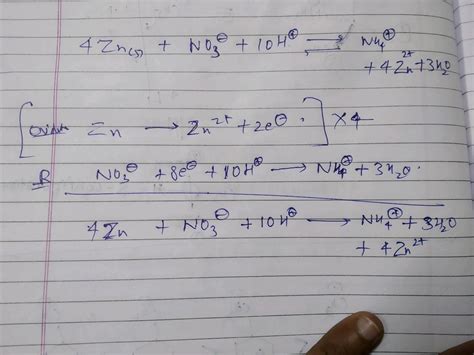 4Zn(s) + NO₃⊖ + 10H⊕ ⇌ NH₄⊕
+ 4Zn²⁺ + 3H₂O
Zn → Zn²⁺ + 2e⊖ ] × 4
R NO₃⊖ + 8e⊖ + 10H⊕ → NH₄⊕ + 3H₂O.
4Zn + NO₃⊖ + 10H⊕ → NH₄⊕ + 3H₂O
+ 4Zn²⁺